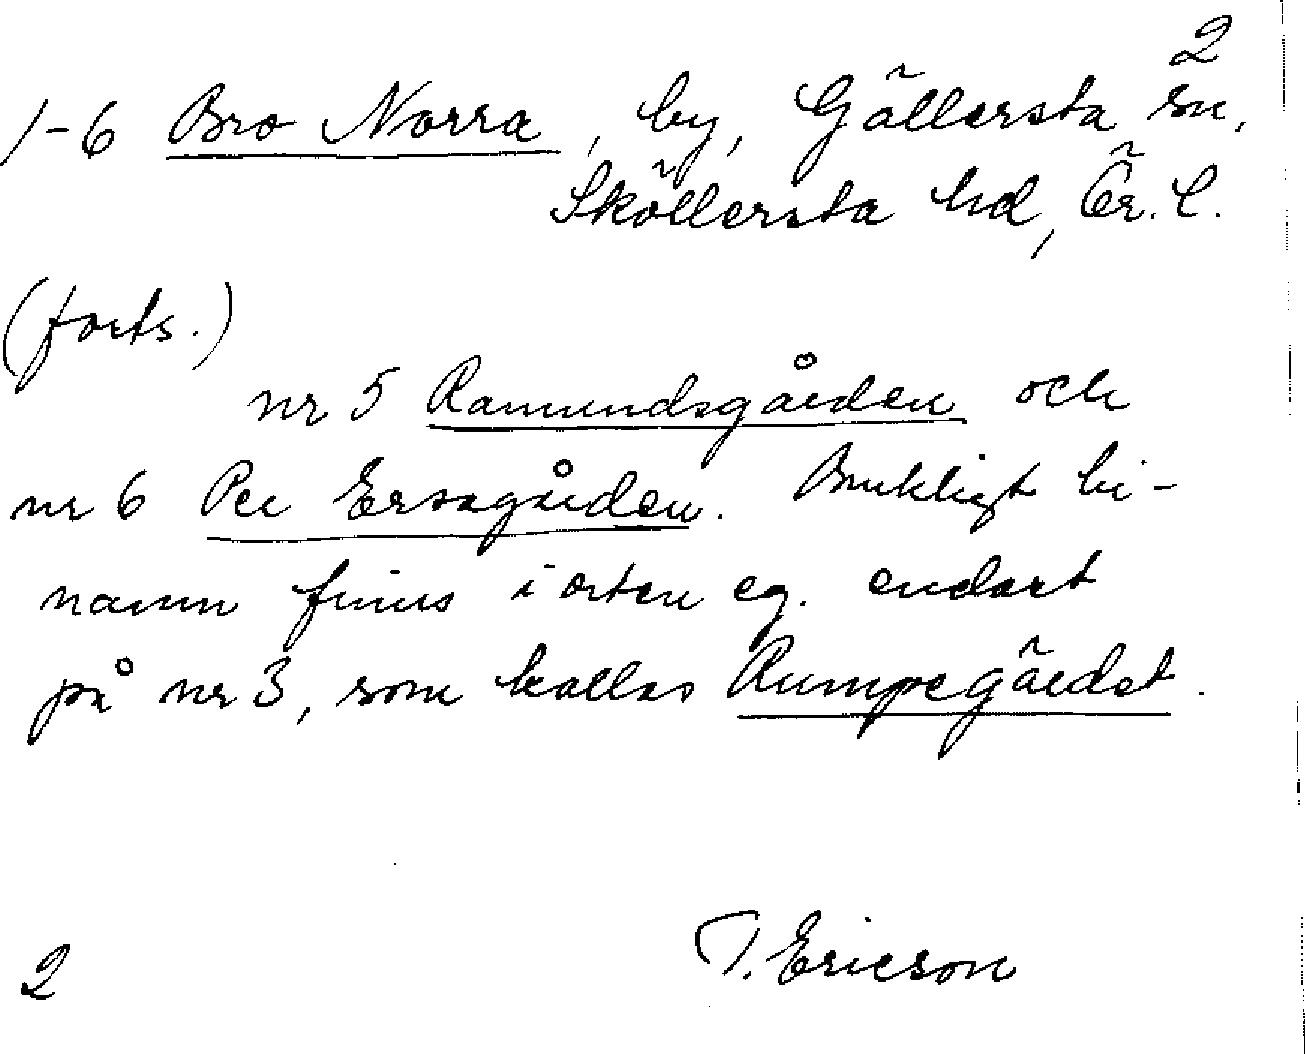 2
1-6 Bro Norra, by, Gällersta sn,
Sköllersta hd, Ör. l.
(forts.)
nr 5 Ramundsgården och
nr 6 Per Ersagården. Brukligt bi-
namn finns i orten eg. endast
på nr 3, som kallas Rumpegärdet.
T. Ericson
2